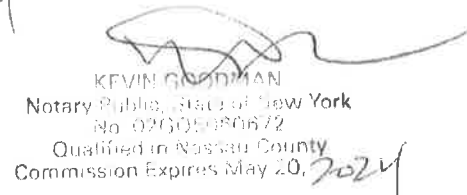 KEVIN GOODMAN
Notary Public, State of New York
No.
Qualified in Nassau County
Commission Expires May 20, 2024